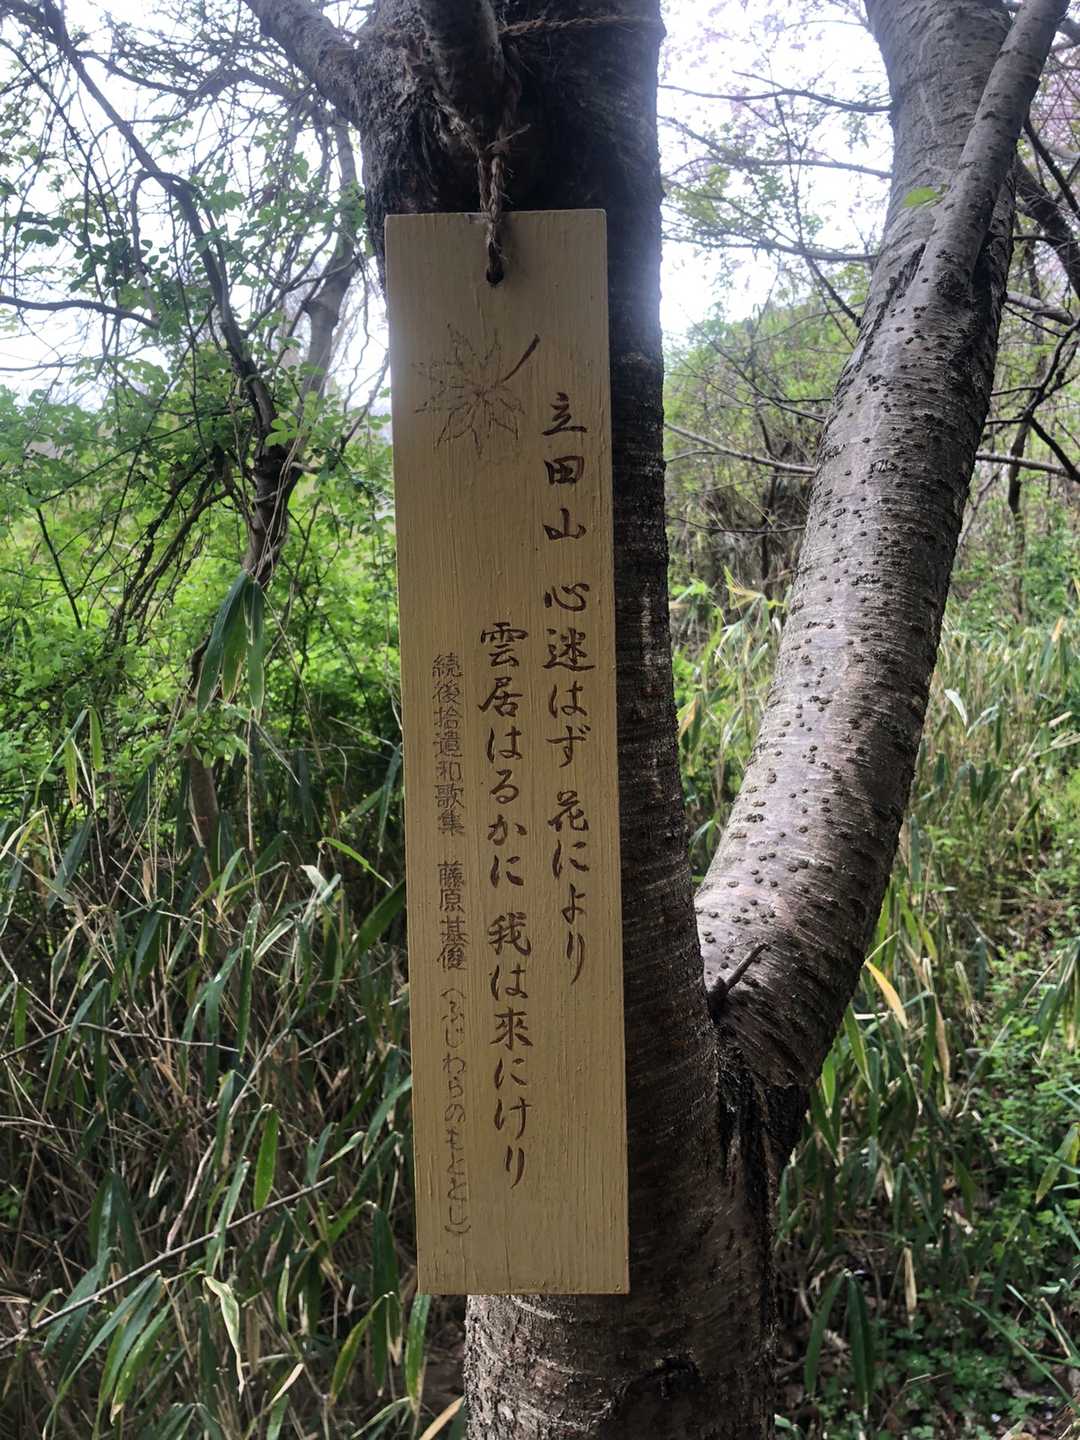 立田山 心迷はず 花により
雲居はるかに 我は來にけり
続後拾遺和歌集 藤原基俊（ふじわらのもととし）